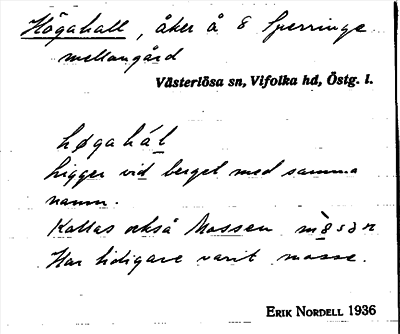 Högahall, åker å 8 Sperringe
mellangård
Västerlösa sn, Vifolka hd, Östg. l.
høgahál
Ligger vid berget med samma
namn.
Kallas också Mossen
Har tidigare varit mosse.
ERIK NORDELL 1936